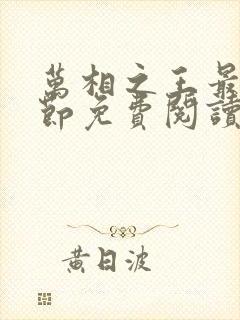 萬相之王最
節免費閱讀
黃日波